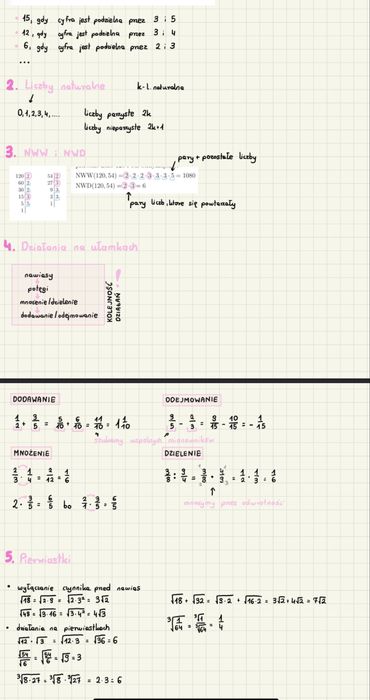 • 15, gdy cyfra jest podzielna przez 3 i 5
• 12, gdy cyfra jest podzielna przez 3 i 4
• 6, gdy cyfra jest podzielna przez 2 i 3
...
2. Liczby naturalne
k-l. naturalna
0,1,2,3,4,....
liczby parzyste 2k
liczby nieparzyste 2k+1
3. NWW i NWD
pary + pozostałe liczby
120 2 54 2
60 2 27 3
30 2 9 3
15 3 3 3
5 5 1
1
NWW(120, 54) = 2·2·2·3·3·3·5 = 1080
NWD(120, 54) = 2·3 = 6
pary liczb, które się powtarzały
4. Działania na ułamkach
nawiasy
potęgi
mnożenie/dzielenie
dodawanie/odejmowanie
KOLEJNOŚĆ DZIAŁAŃ !
DODAWANIE
1/2 + 3/5 = 5/10 + 6/10 = 11/10 = 1 1/10
ODEJMOWANIE
3/5 - 2/3 = 9/15 - 10/15 = - 1/15
szukamy wspólnych mianowników
MNOŻENIE
2/3 · 1/4 = 2/12 = 1/6
2 · 3/5 = 6/5 bo 2/1 · 3/5 = 6/5
DZIELENIE
mnożymy przez odwrotność
5. Pierwiastki
• wyłączanie czynnika przed nawias
√18 = √2·9 = √2·3² = 3√2
√48 = √3·16 = √3·4² = 4√3
• działania na pierwiastkach
√12 · √3 = √12·3 = √36 = 6
√54/√6 = √54/6 = √9 = 3
³√8·27 = ³√8 · ³√27 = 2·3 = 6
√18 + √32 = √9·2 + √16·2 = 3√2 + 4√2 = 7√2
³√1/64 = ³√1/³√64 = 1/4